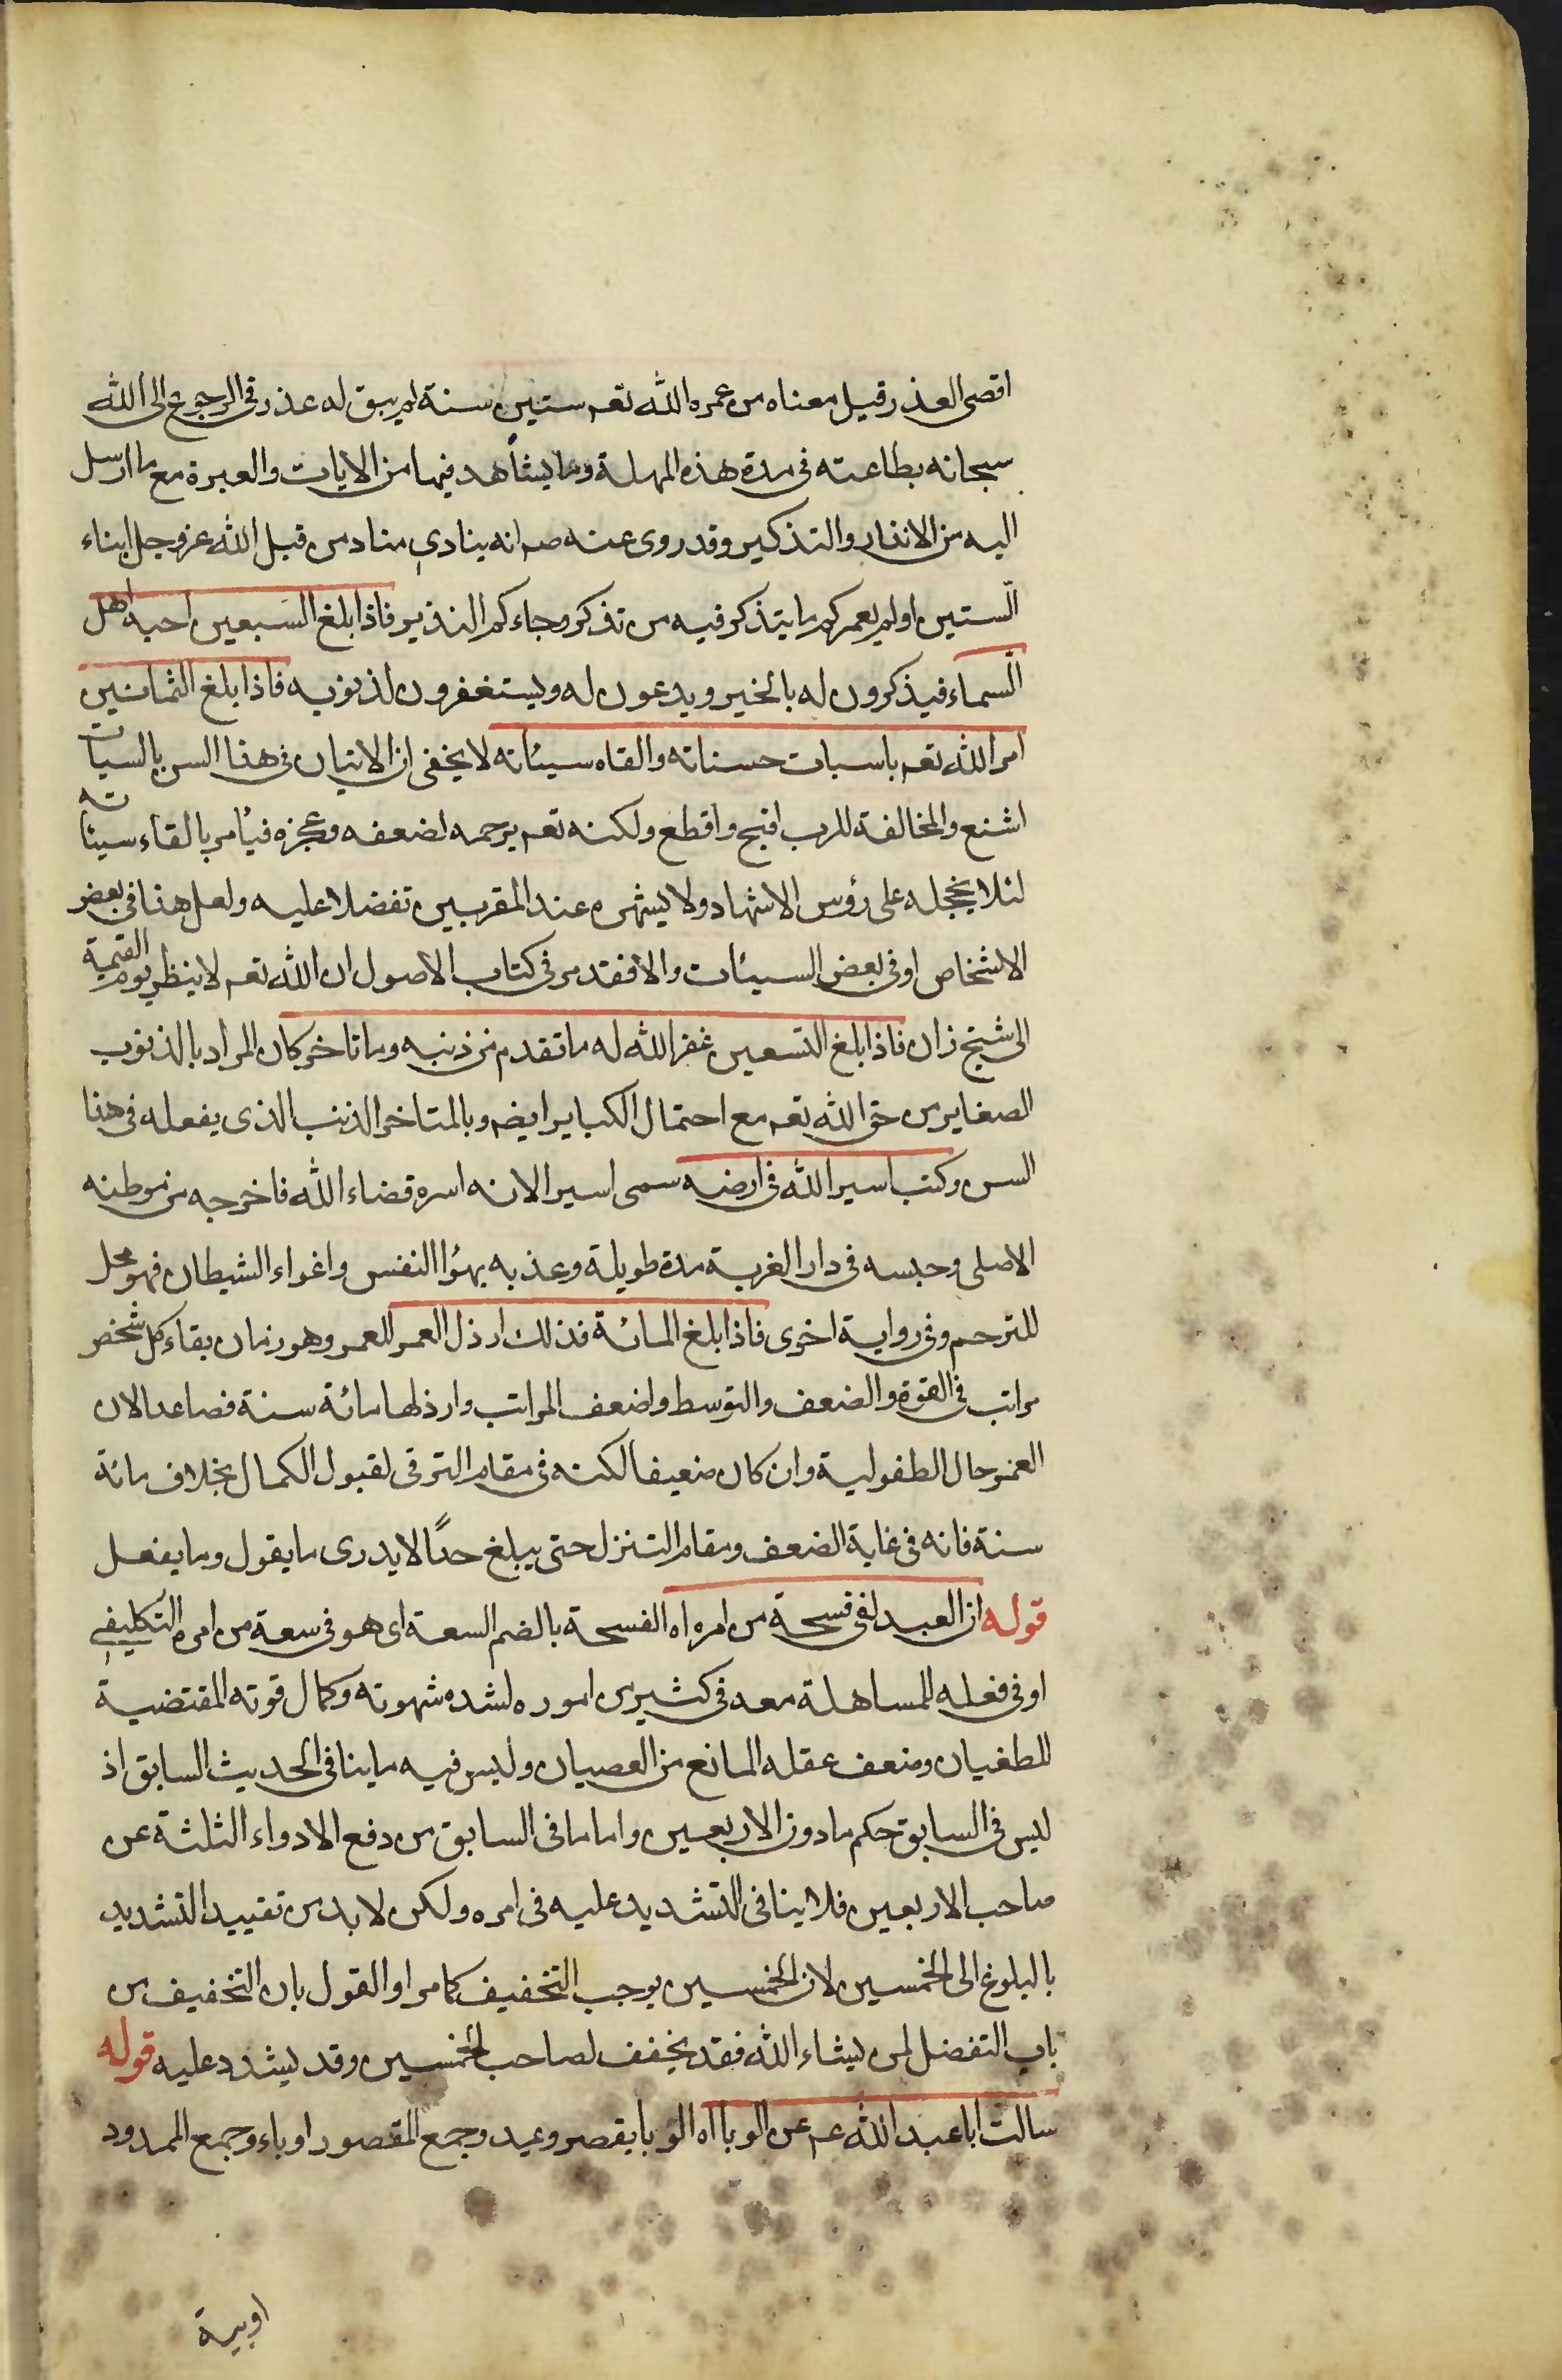 اقصى العذر قيل معناه من عمره الله تعم ستين سنة لم يبق له عذر في الرجوع الى الله
سبحانه بطاعته في مدة هذه المهلة وما يشاهد فيها من الايات والعبرة مع ما ارسل
اليه من الانذار والتذكير وقد روى عنه صم انه ينادي مناد من قبل الله عز وجل ابناء
الستين اولم يعمركم ما يتذكر فيه من تذكر وجاءكم النذير فاذا بلغ السبعين احبه اهل
السماء فيذكرون له بالخير ويدعون له ويستغفرون لذنوبه فاذا بلغ الثمانين
امر الله تعم باسبات حسناته والقاه سيئاته لا يخفى ان الاتيان في هذا السن بالسيات
اشنع والمخالفة للرب اقبح واقطع ولكنه تعم يرحمه لضعفه وعجزه فيأمر بالقاء سيئاته
لئلا يخجله على رؤس الاشهاد ولا يشهره عند المقربين تفضلا عليه ولعل هذا في بعض
الاشخاص او في بعض السيئات والا فقد مر في كتاب الاصول ان الله تعم لا ينظر يوم القيمة
الى شيخ زان فاذا بلغ التسعين غفر الله له ما تقدم من ذنبه وما تاخر كان المراد بالذنوب
الصغاير من حق الله تعم مع احتمال الكباير ايضم وبالمتاخر الذنب الذى يفعله في هذا
السن وكتب اسير الله في ارضه سمى اسيرا لانه اسره قضاء الله فاخرجه من موطنه
الاصلى وحبسه في دار الغربة مدة طويلة وعذبه بهؤا النفس واغواء الشيطان فهو محل
للترحم وفي رواية اخرى فاذا بلغ المائة فذلك ارذل العمر للعمر وهو زمان بقاء كل شخص
مراتب في القوة والضعف والتوسط واضعف المراتب وارذلها مائة سنة فصاعدا لان
العمر حال الطفولية وان كان ضعيفا لكنه في مقام الترقى لقبول الكمال بخلاف مائة
سنة فانه في غاية الضعف ومقام التنزل حتى يبلغ حدًا لا يدرى ما يقول وما يفعل
قوله ان العبد لفى فسحة من امره اه الفسحة بالضم السعة اى هو في سعة من امره التكليفي
او في فعله للمساهلة معه في كثير من اموره لشده شهوته وكمال قوته المقتضية
للطغيان وضعف عقله المانع من العصيان وليس فيه ما ينافى الحديث السابق اذ
ليس في السابق حكم ما دون الاربعين واما ما فى السابق من دفع الادواء الثلثة عن
صاحب الاربعين فلا ينافى التشديد عليه فى امره ولكن لا بد من تقييد التشديد
بالبلوغ الى الخمسين لان الخمسين يوجب التخفيف كما مر او القول بان التخفيف من
باب التفضل لمن يشاء الله فقد يخفف لصاحب الخمسين وقد يشدد عليه قوله
سالت ابا عبد الله عم عن الوبا اه الوبا يقصر ويمد وجمع المقصور اوباء وجمع الممدود
اوبية